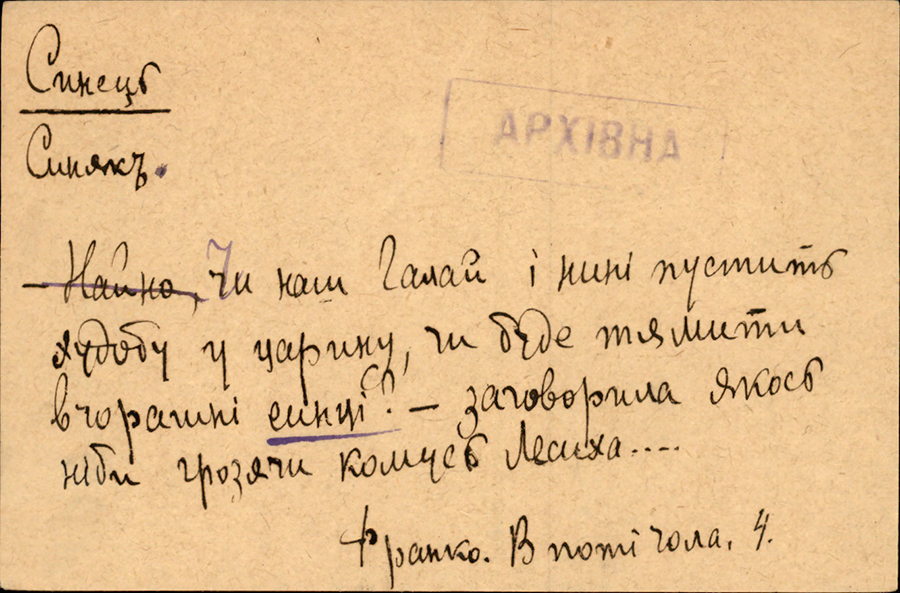 Синець
АРХІВНА
Синякъ.
— Найно, Чи наш Галай і нині пустить
худобу у царину, чи буде тямити
вчорашні синці? — заговорила якось
ніби грозячи комусь Лесиха....
Франко. В поті чола, 4.